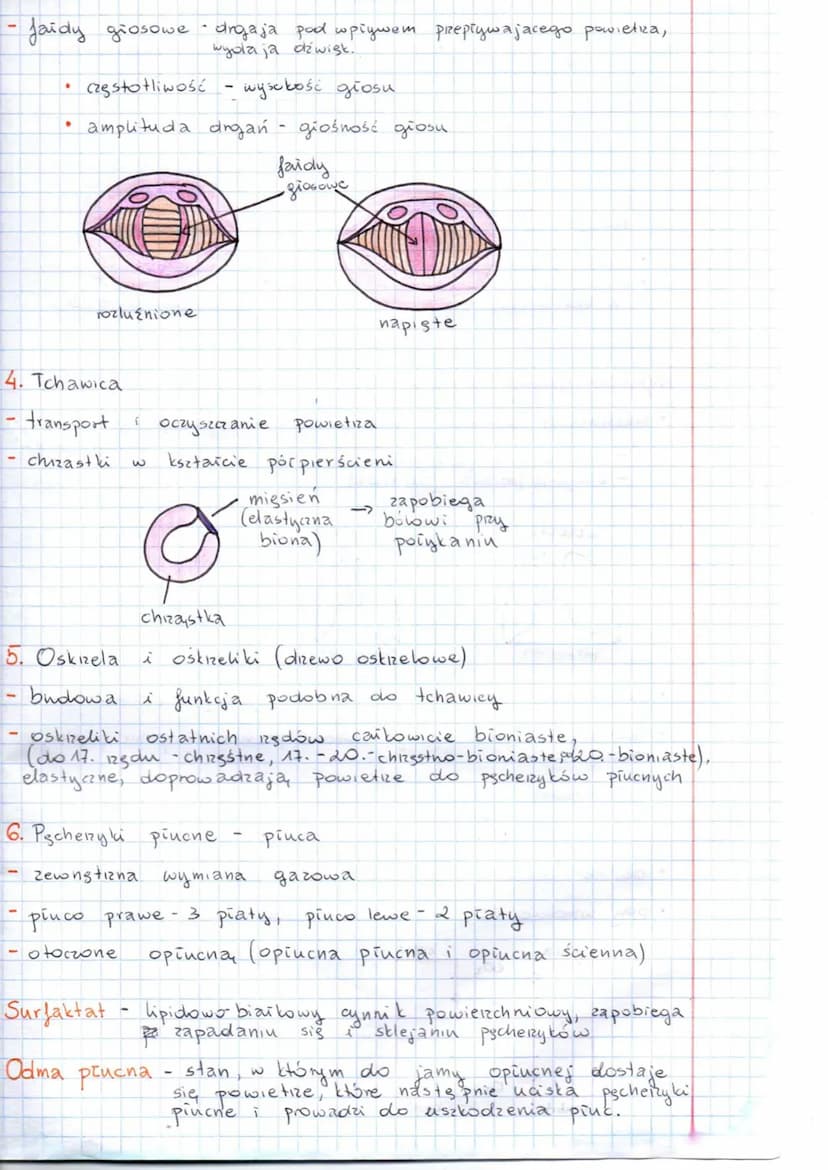 - fałdy głosowe - drgają pod wpływem przepływającego powietrza,
wydają dźwięk.
• częstotliwość - wysokość głosu
• amplituda drgań - głośność głosu
fałdy
głosowe
rozluźnione
napięte
4. Tchawica
- transport i oczyszczanie powietrza
- chrząstki w kształcie półpierścieni
mięsień
(elastyczna
błona)
→ zapobiega
bólowi przy
połykaniu
chrząstka
5. Oskrzela i oskrzeliki (drzewo oskrzelowe)
- budowa i funkcja podobna do tchawicy
- oskrzeliki ostatnich rzędów całkowicie błoniaste,
(do 17. rzędu - chrzęstne, 17. - 20. - chrzęstno-błoniaste, 20. - błoniaste),
elastyczne, doprowadzają powietrze do pęcherzyków płucnych
6. Pęcherzyki płucne - płuca
- zewnętrzna wymiana gazowa
- płuco prawe - 3 płaty, płuco lewe - 2 płaty
- otoczone opłucną (opłucna płucna i opłucna ścienna)
Surfaktat - lipidowo białkowy cynnik powierzchniowy, zapobiega
zapadaniu się i sklejaniu pęcherzyków
Odma płucna - stan, w którym do jamy opłucnej dostaje
się powietrze, które następnie uciska pęcherzyki
płucne i prowadzi do uszkodzenia płuc.